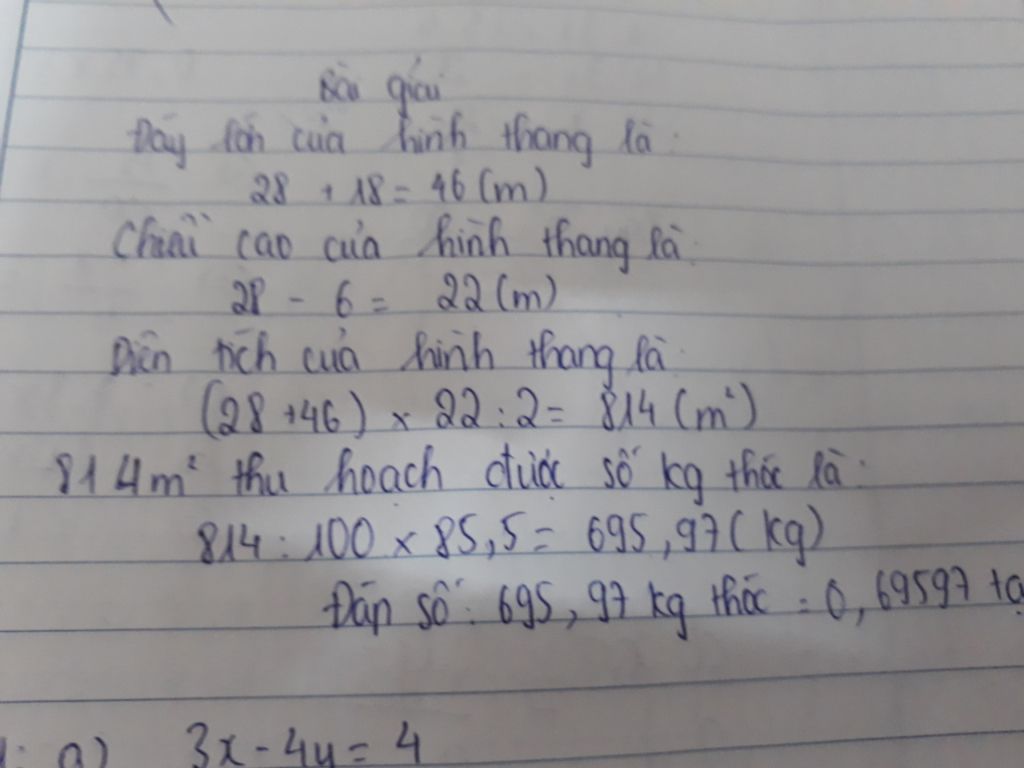 Bài giải
Đáy lớn của hình thang là:
28 + 18 = 46 (m)
Chiều cao của hình thang là
28 - 6 = 22 (m)
Diện tích của hình thang là:
(28 + 46) × 22 : 2 = 814 (m²)
814m² thu hoạch được số kg thóc là:
814 : 100 × 85,5 = 695,97 (kg)
Đáp số: 695,97 kg thóc = 0,69597 tạ
a) 3x - 4y = 4